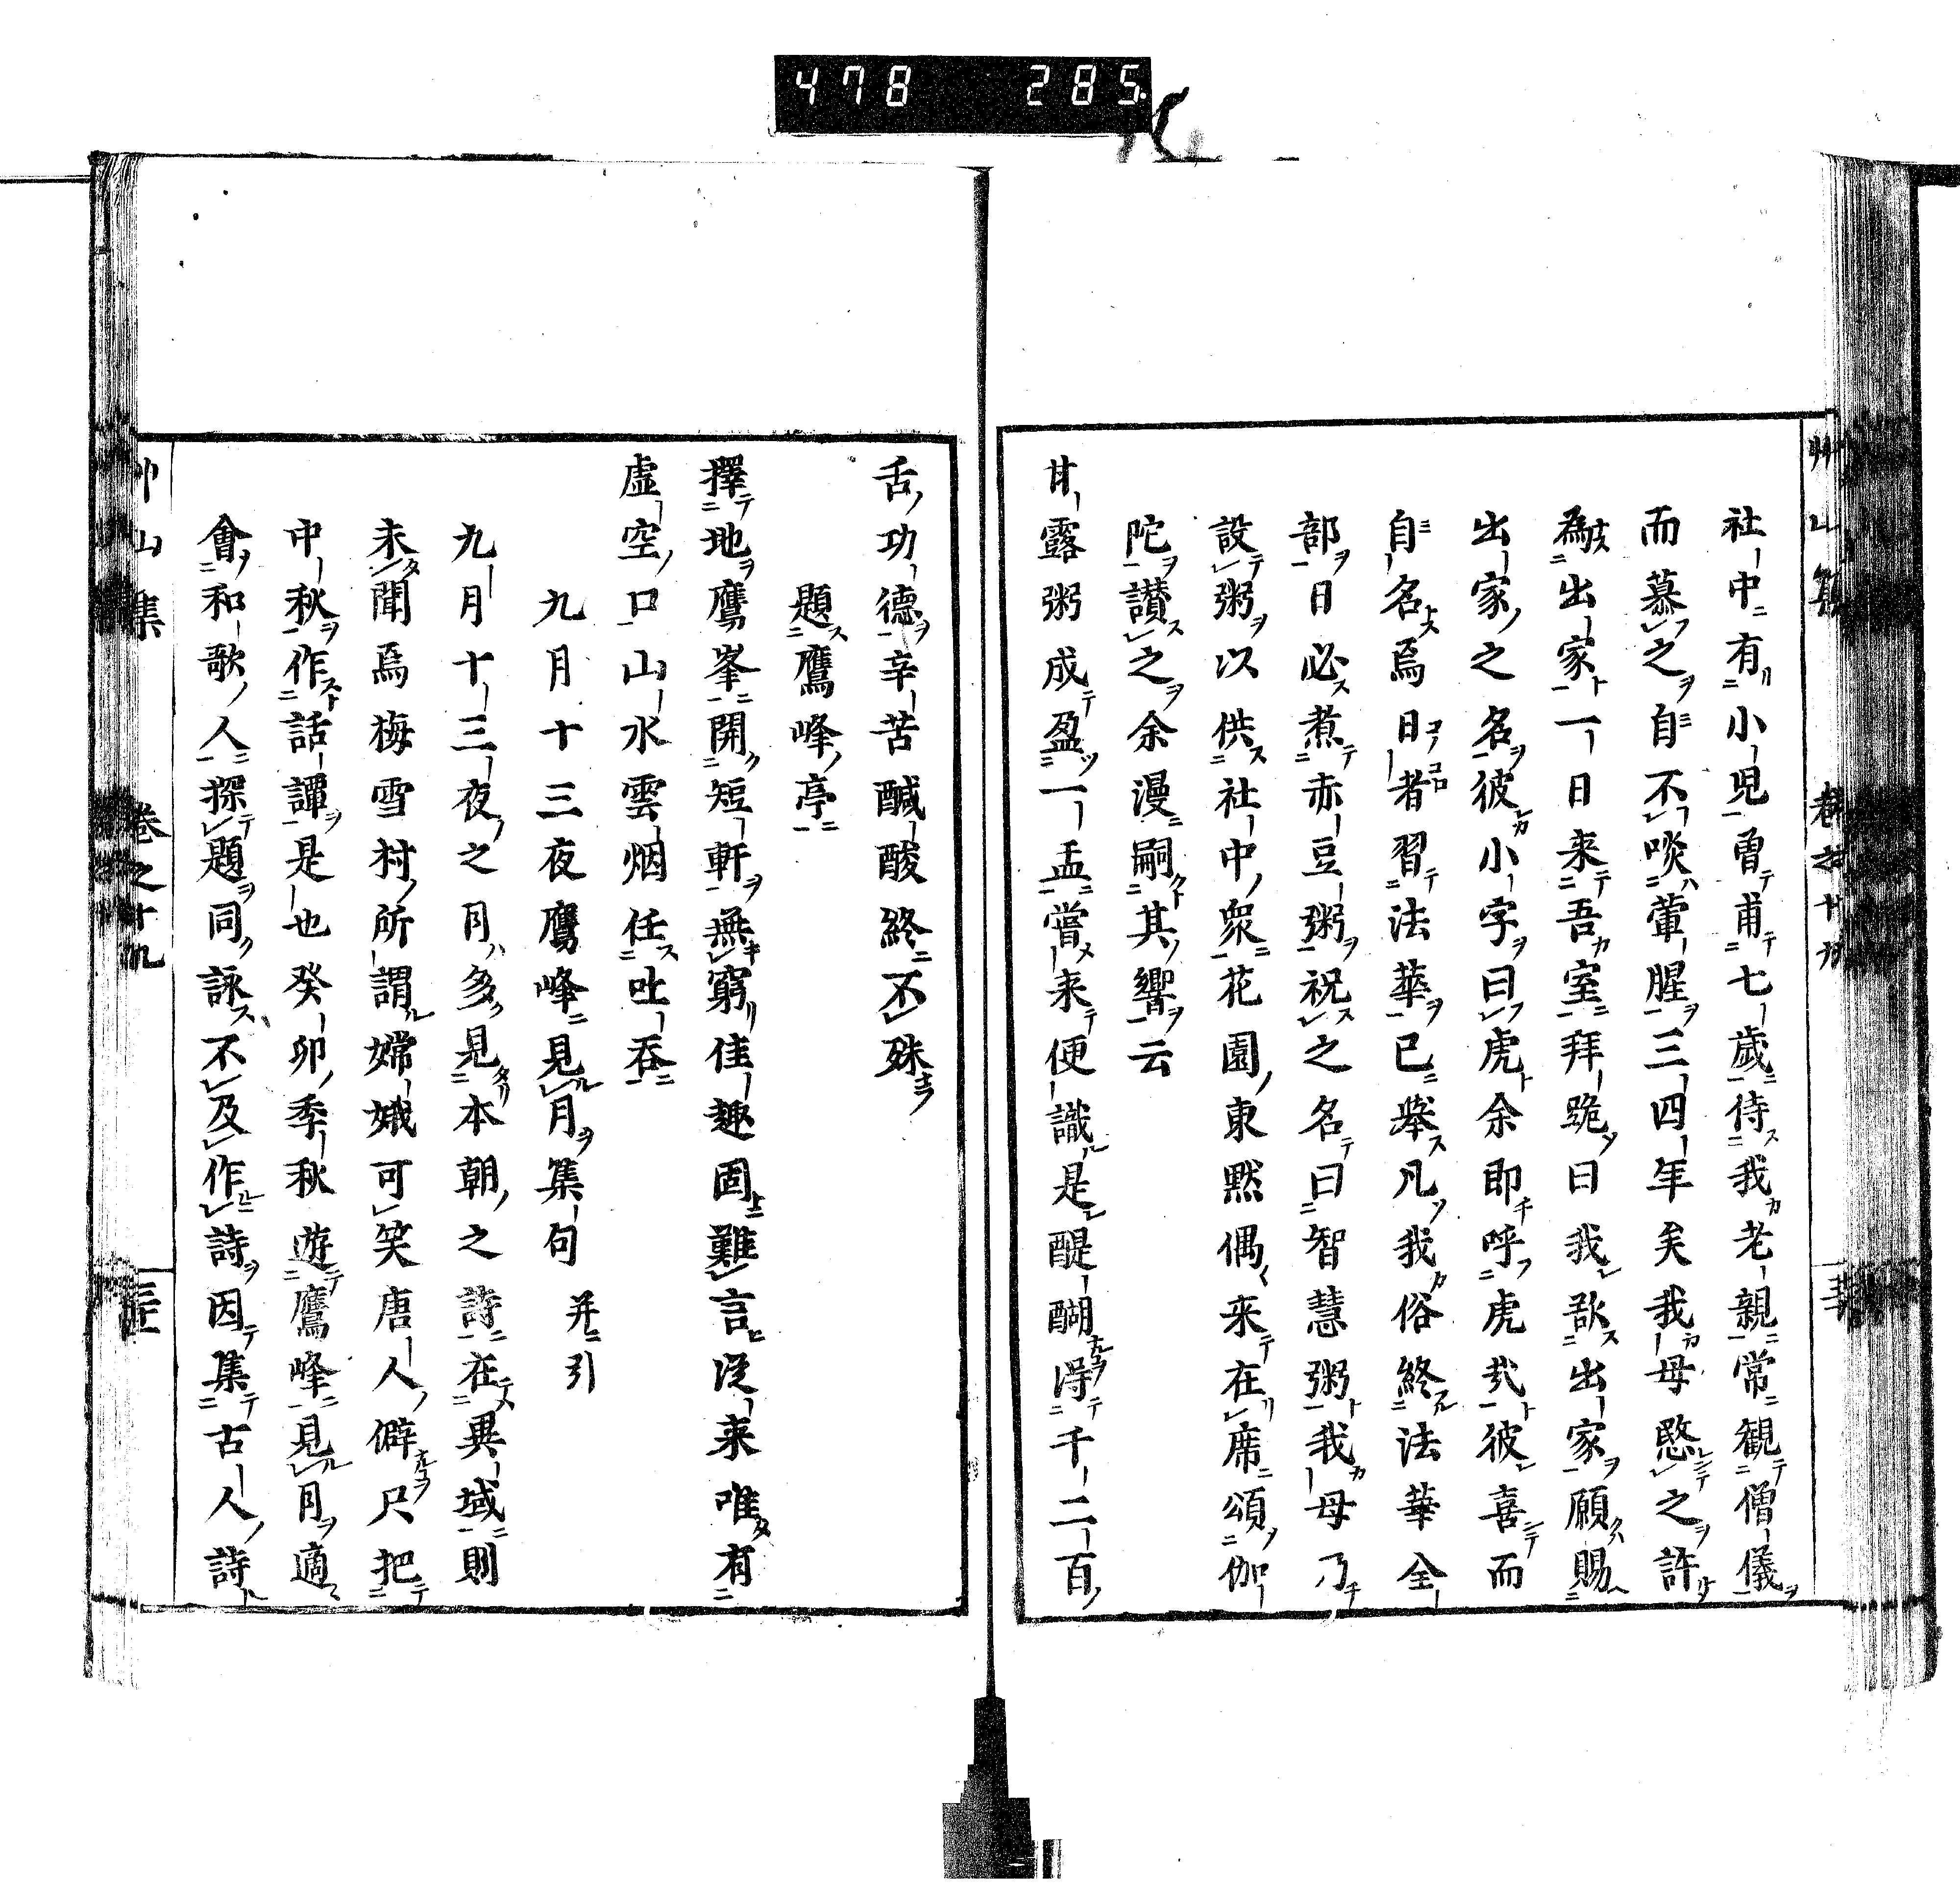 478 285
社中有小児曽甫七歳侍我老親常観僧儀
而慕之自不啖葷腥三四年矣我母愍之許
為出家一日来吾室拜跪曰我欲出家願賜
出家之名彼小字曰虎余即呼虎哉彼喜而
自名焉日者習法華已挙凡我俗終法華全
部日必煮赤豆粥祝之名曰智慧粥我母乃
設粥以供社中衆花園東黙偶来在席頌伽
陀讃之余漫嗣其響云
甘露粥成盈一盂嘗来便識是醍醐淂千二百
舌功德辛苦醎酸終不殊
題鷹峰亭
擇地鷹峯開短軒無窮佳趣固難言從来唯有
虚空口山水雲烟任吐吞
九月十三夜鷹峰見月集句 并引
九月十三夜之月多見本朝之詩在異域則
未聞焉梅雪村所謂嫦娥可笑唐人僻只把
中秋作話譚是也癸卯季秋遊鷹峰見月適
會和歌人探題同詠不及作詩因集古人詩
艸山集 巻之十九